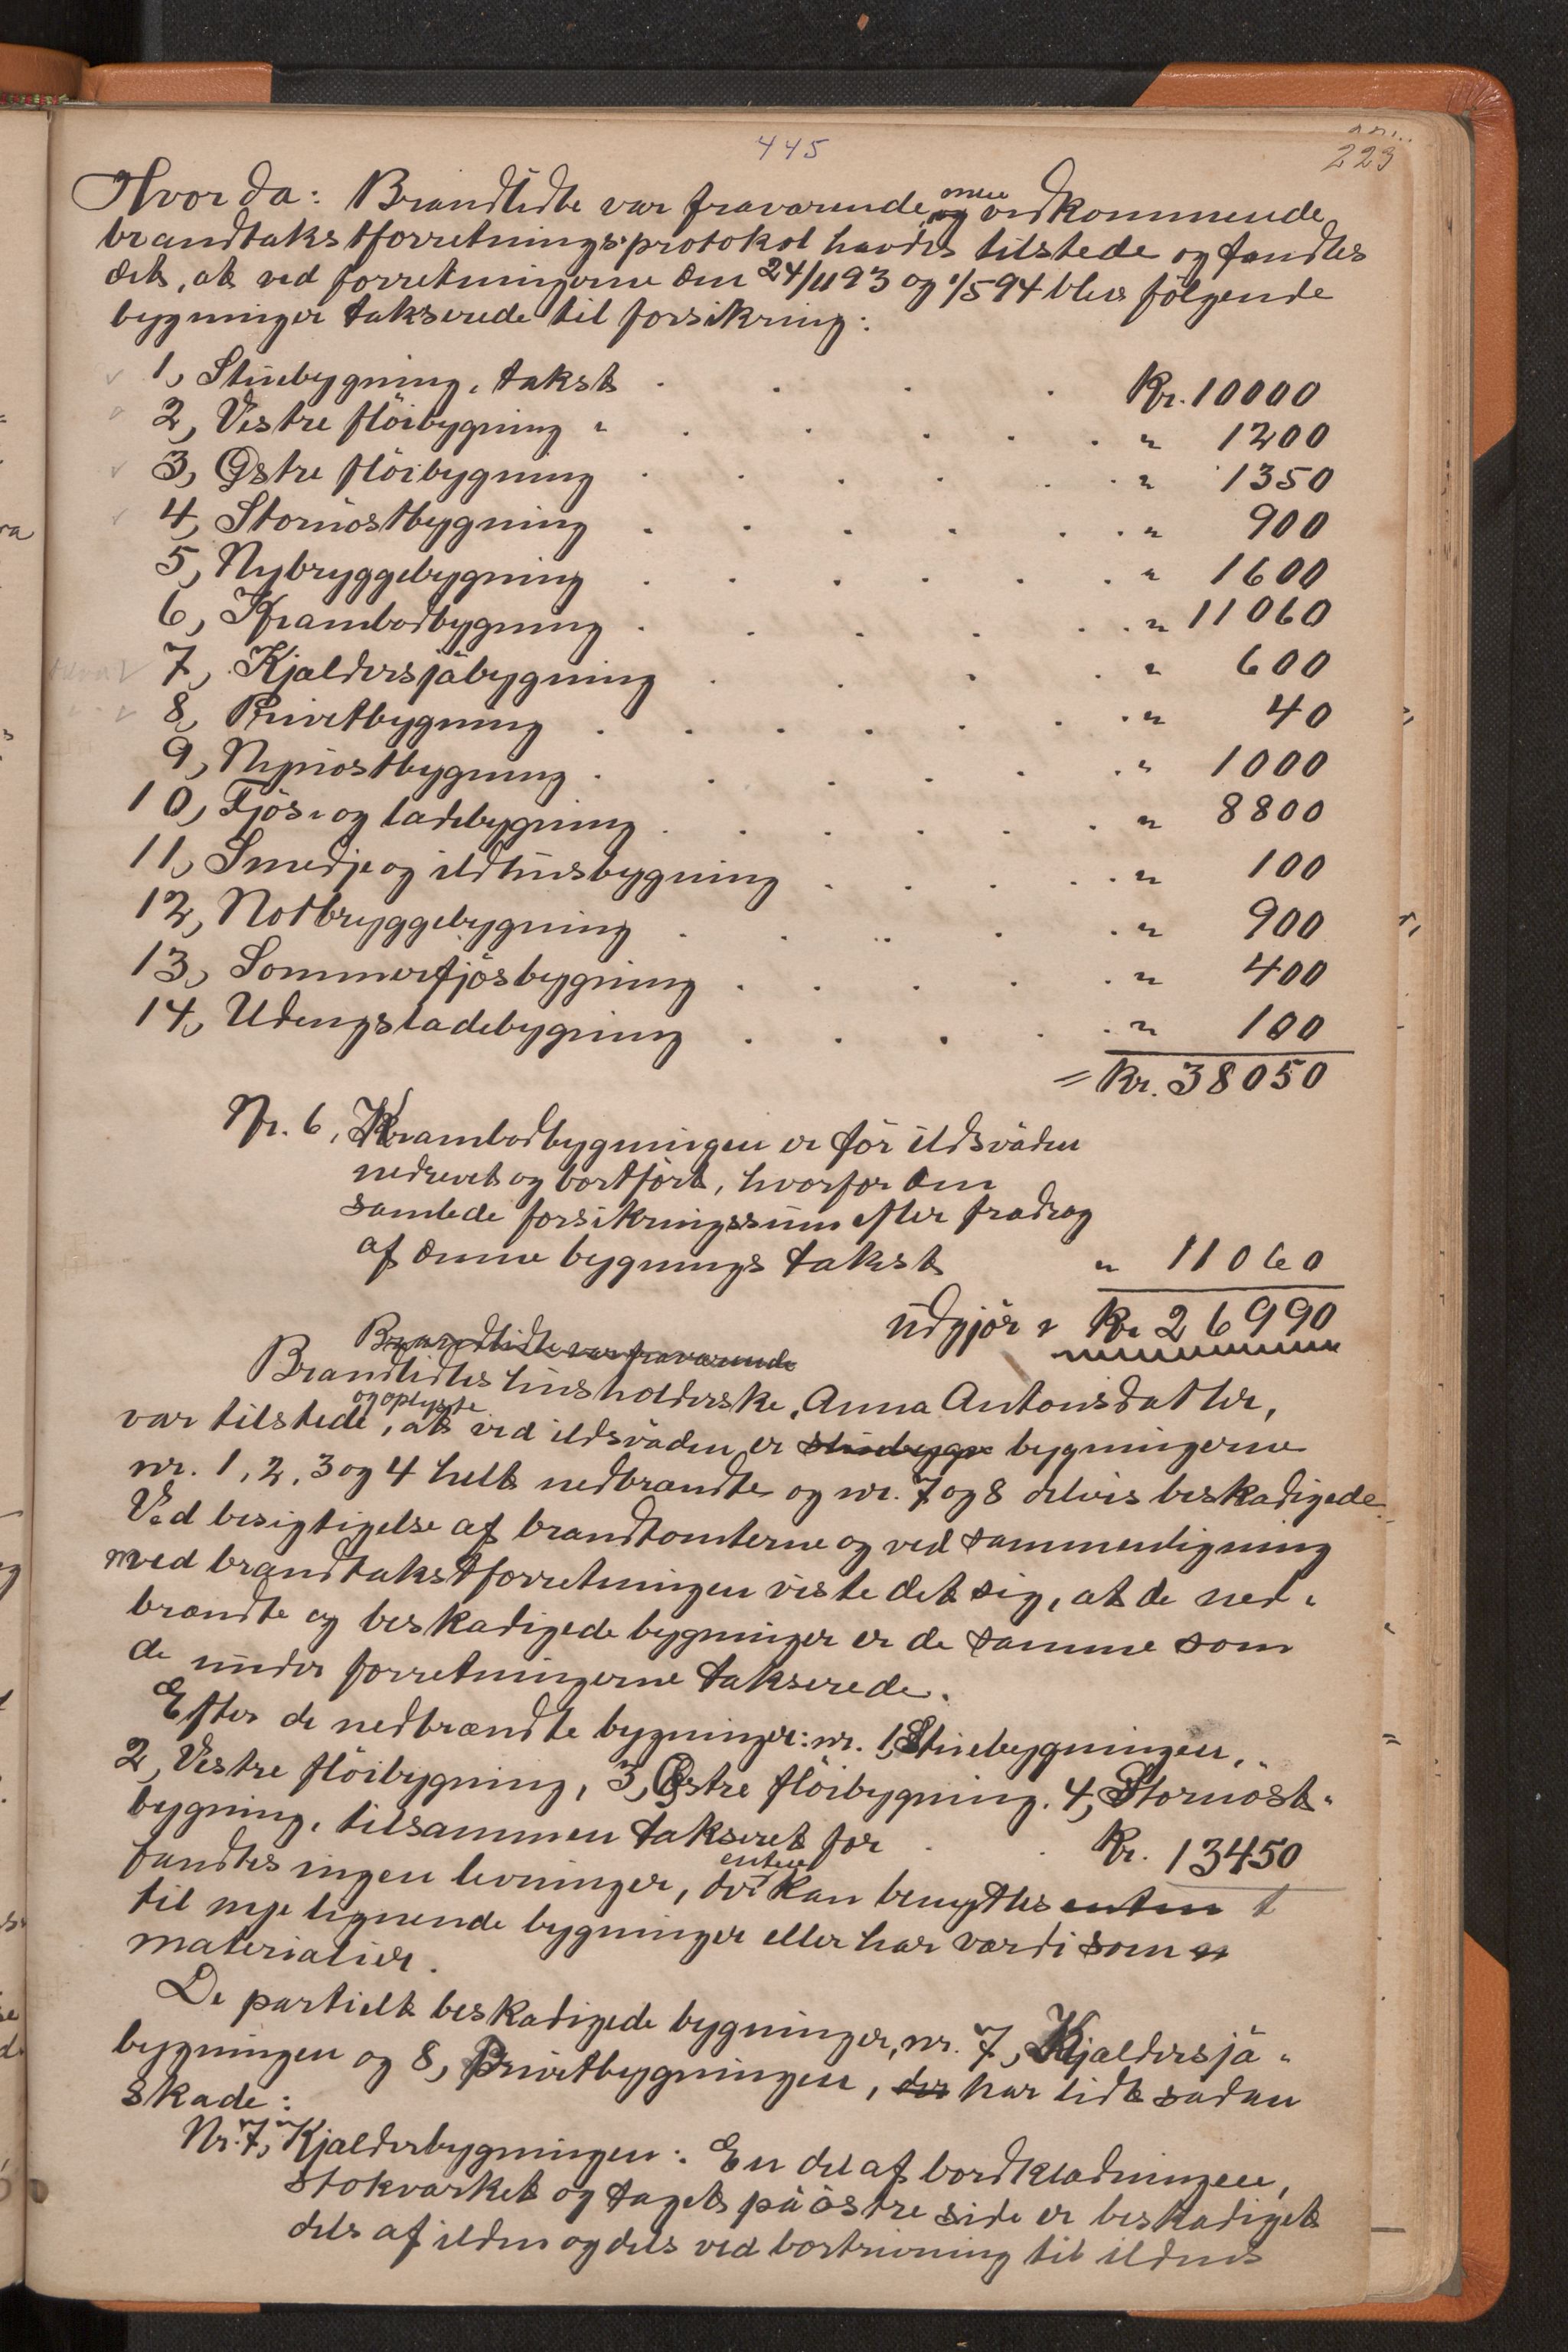 445
223
Hvor da: Brandlidte var fraværende, men vedkommende
brandtakstforretningsprotokol havdes tilstede og fandtes
det, at ved forretningerne den 24/11 93 og 1/5 94 blev følgende
bygninger takserede til forsikring:
1, Stuebygning, takst . . . . Kr. 10000
2, Vestre flöibygning " . . . . . " 1200
3, Østre flöibygning . . . . . . " 1350
4, Stornöstbygning . . . . . . " 900
5, Nybryggebygning . . . . . . " 1600
6, Krambodbygning . . . . . . " 11060
7, Kjældersjåbygning . . . . " 600
8, Privetbygning . . . . . . " 40
9, Nynöstbygning . . . . . " 1000
10, Fjös- og ladebygning . . . . . . " 8800
11, Smedje og ildhusbygning . . . . . " 100
12, Notbryggebygning . . . . . " 900
13, Sommerfjösbygning . . . . . " 400
14, Udengsladebygning . . . . . " 100
= Kr. 38050
Nr. 6, Krambodbygningen er för ildsvåden
nedrevet og bortfört, hvorfor den
samlede forsikringssum efter fradrag
af denne bygnings takst " 11060
udgjör " Kr. 26990
Brandlidte var fraværende
Brandlidtes husholderske, Anna Antonsdatter,
og oplyste
var tilstede, at ved ildsvåden er stuebygn bygningerne
nr. 1, 2, 3 og 4 helt nedbrændte og nr. 7 og 8 delvis beskadigede.
Ved besigtigelse af brandtomterne og ved sammenligning
med brandtakstforretningen viste det sig, at de ned-
brændte og beskadigede bygninger er de samme som
de under forretningerne takserede.
Efter de nedbrændte bygninger: nr. 1, Stuebygningen,
2, Vestre flöibygning, 3, Østre flöibygning, 4, Stornöst-
bygning, tilsammen takseret for . . Kr. 13450
enten
fandtes ingen levninger, der kan benyttes enten
til nye lignende bygninger eller har værdi som
materialier.
De partielt beskadigede bygninger, nr. 7, Kjældersjå-
bygningen og 8, Privetbygningen, der har lidt sådan
skade:
Nr. 7, Kjælderbygningen: En del af bordklædningen,
stokværket og taget på östre side er beskadiget
dels af ilden og dels ved bortrivning til ildens